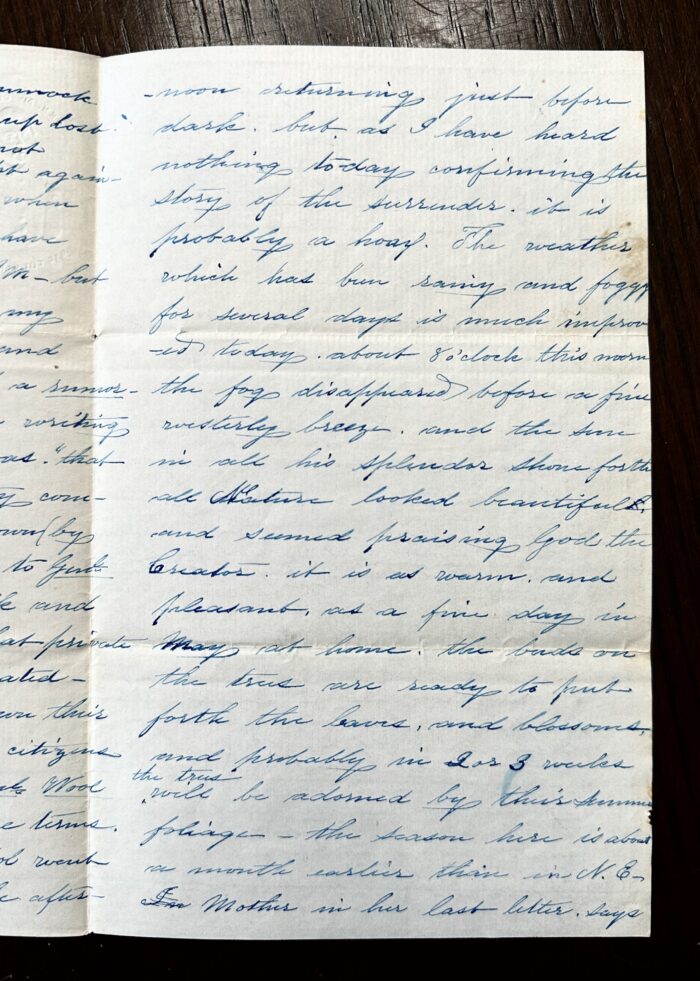 mmock
up lost.
not
t again-
when
have
M- but
my
and
a rumor-
writing
as. "that
y com-
own (by
to Genl
e and
at private
ated-
wn their
citizens
Wool
e terms.
ol went
e after-
-noon returning just before
dark. but as I have heard
nothing to-day confirming the
story of the surrender. it is
probably a hoax. The weather
which has been rainy and foggy
for several days is much improv
-ed today. about 8 o'clock this morn
the fog disappeared before a fine
westerly breeze. and the sun
in all his splendor shone forth
all Nature looked beautiful &.
and seemed praising God the
Creator. it is as warm. and
pleasant. as a fine day in
May at home. the buds on
the trees are ready to put
forth the leaves, and blossoms.
and probably in 2 or 3 weeks
the trees
will be adorned by their summer
foliage - the season here is about
a month earlier than in N.E-
In Mother in her last letter. says